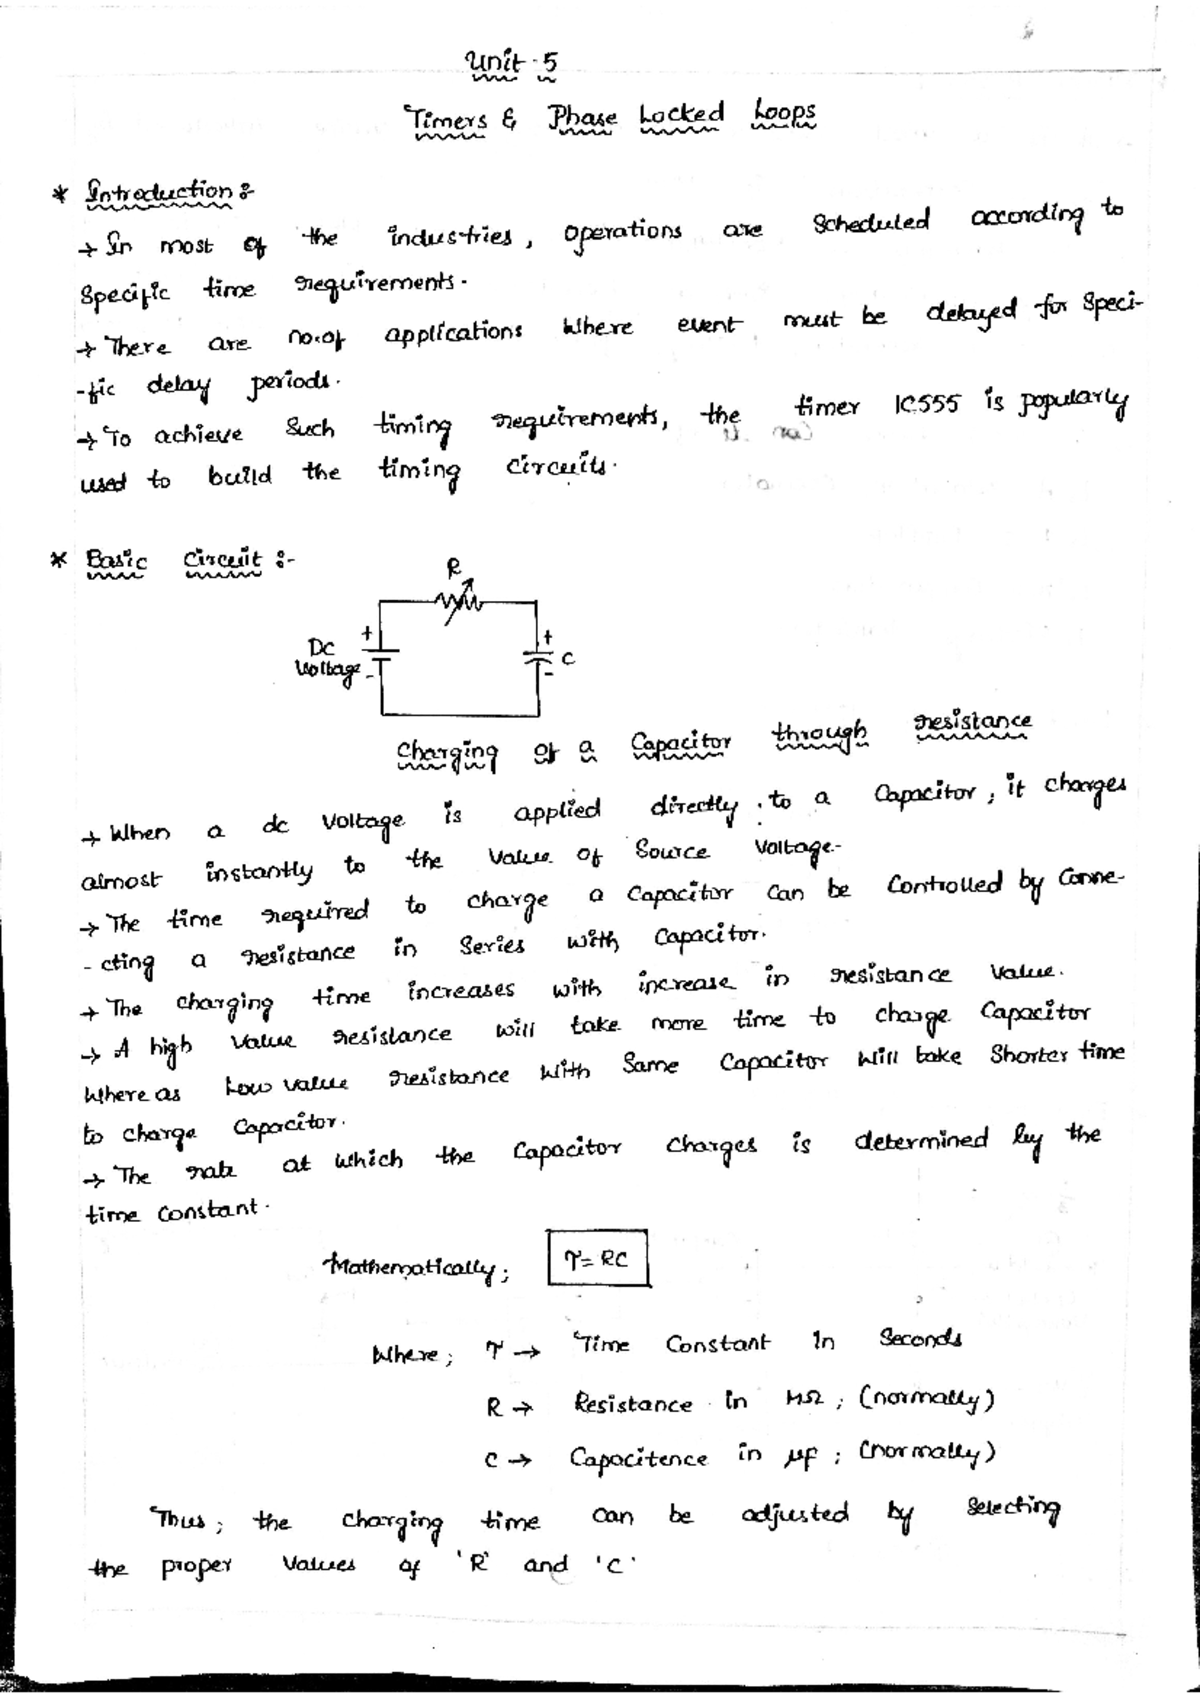 Unit-5
Timers & Phase Locked Loops
* Introduction :-
→ In most of the industries, operations are scheduled according to
specific time requirements.
→ There are no.of applications where event must be delayed for speci-
-fic delay periods.
→ To achieve such timing requirements, the timer IC555 is popularly
used to build the timing circuits.
* Basic Circuit :-
R
DC
Voltage
+
-
+
-
C
Charging of a Capacitor through resistance
→ When a dc voltage is applied directly to a capacitor, it charges
almost instantly to the value of source voltage.
→ The time required to charge a capacitor can be controlled by conne-
-cting a resistance in series with capacitor.
→ The charging time increases with increase in resistance value.
→ A high value resistance will take more time to charge capacitor
where as low value resistance with same capacitor will take shorter time
to charge capacitor.
→ The rate at which the capacitor charges is determined by the
time constant.
Mathematically; τ = RC
Where; τ → Time Constant in seconds
R → Resistance in MΩ; (normally)
C → Capacitence in μF; (normally)
Thus; the charging time can be adjusted by selecting
the proper values of 'R' and 'C'